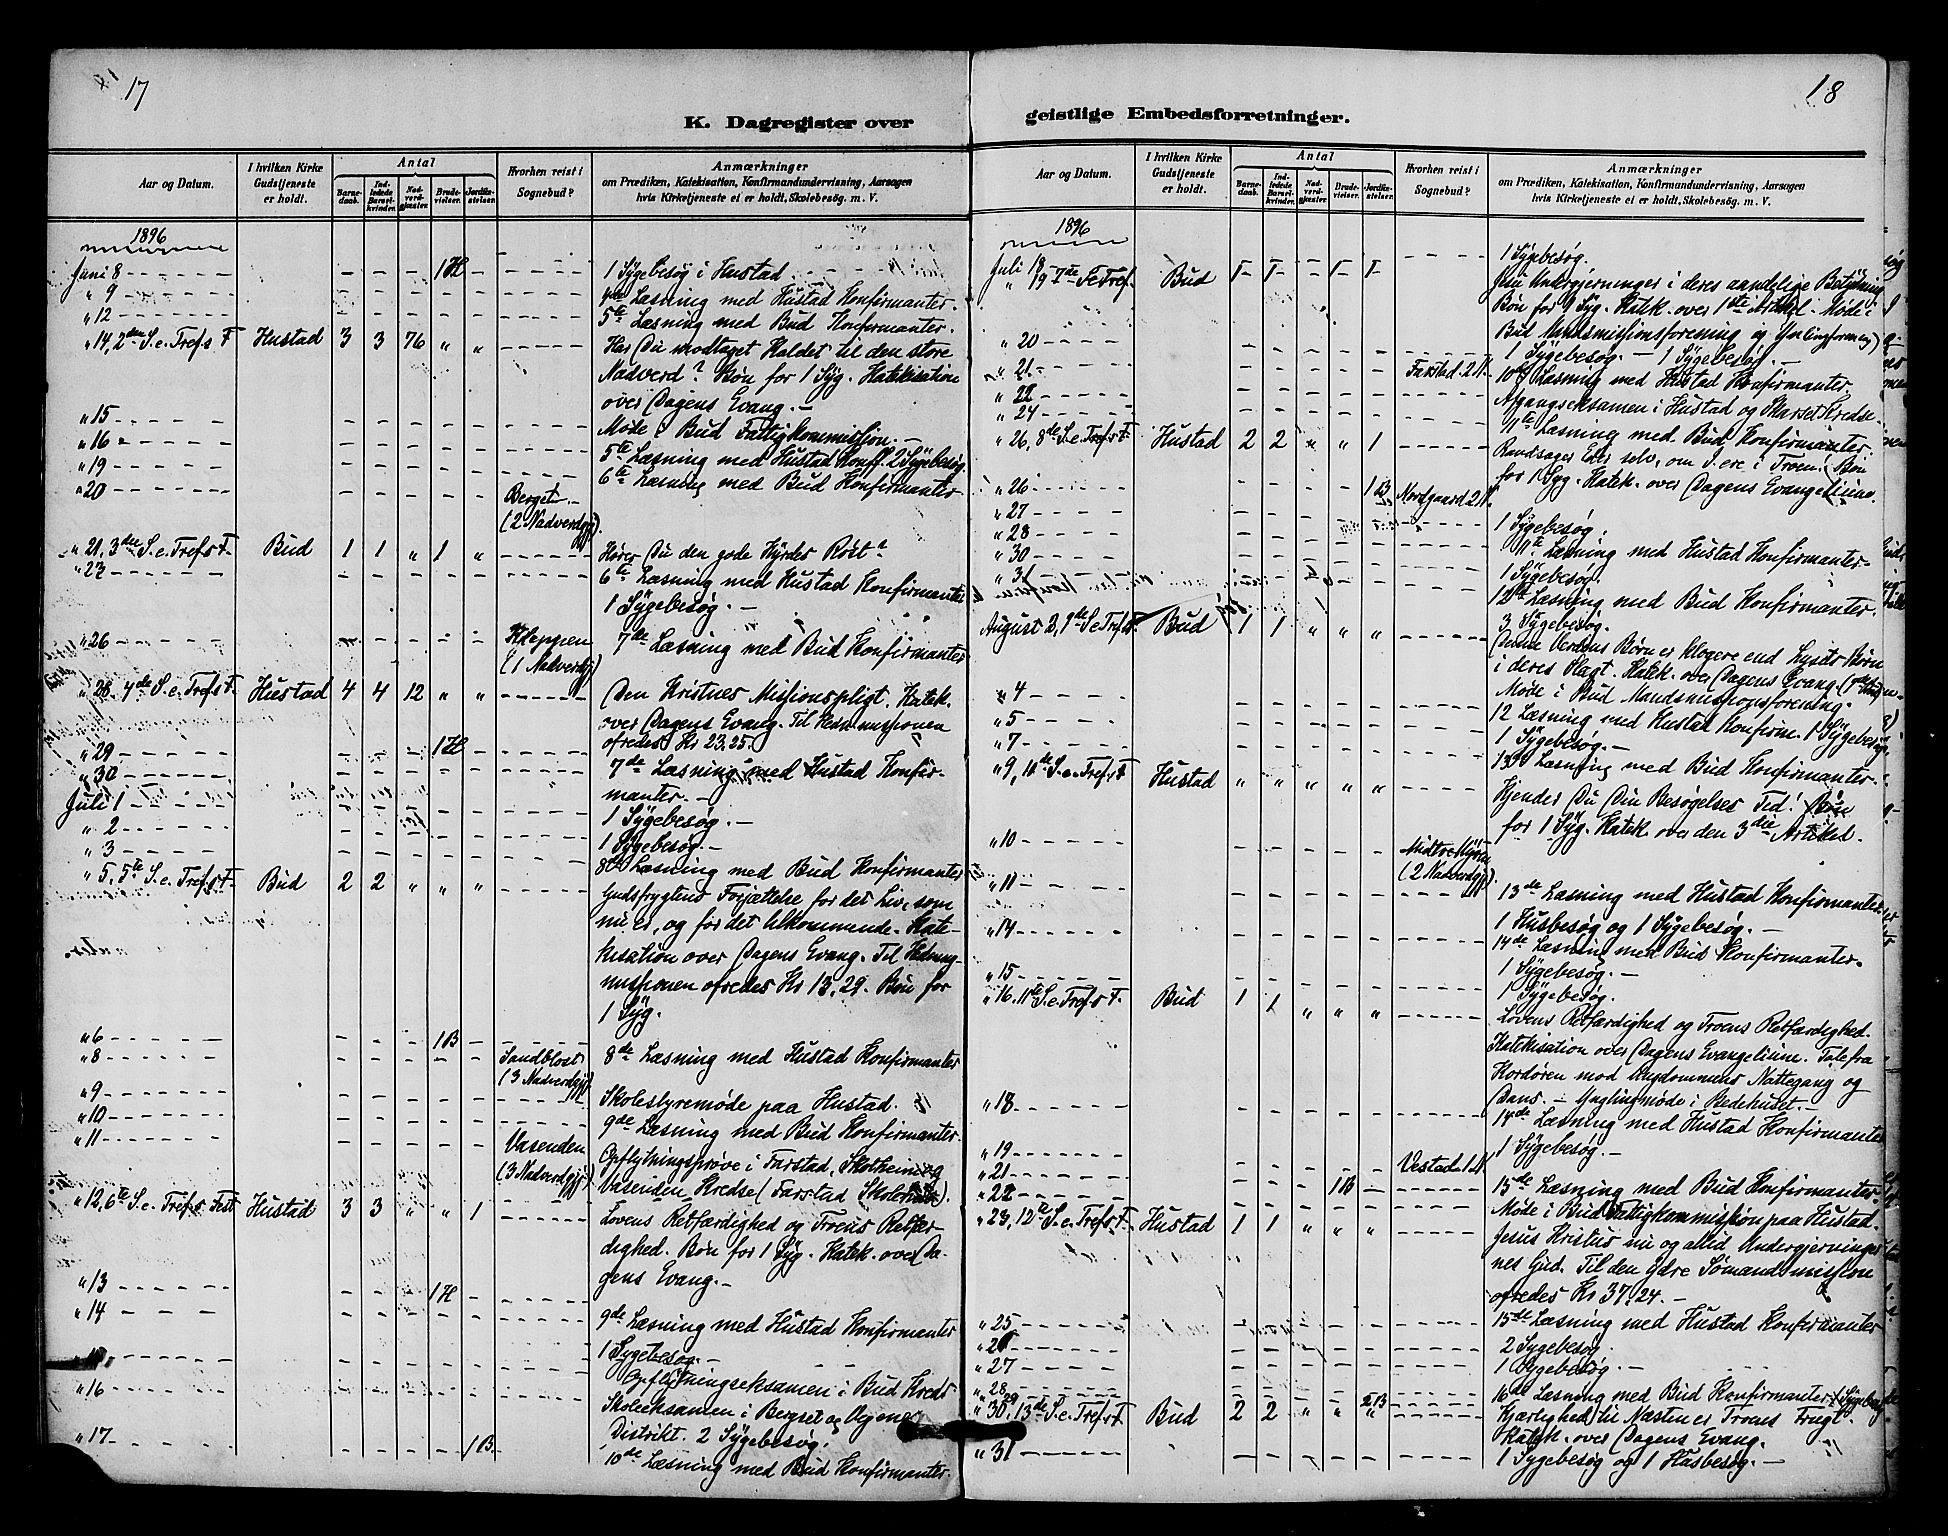 17
K. Dagregister over
Aar og Datum.
I hvilken Kirke Gudstjeneste er holdt.
Antal
Barnedaab.
Indledede Barselkvinder.
Nadverdgjæster.
Brudevielser.
Jordfæstelser.
Hvorhen reist i Sognebud?
Anmærkninger
om Prædiken, Katekisation, Konfirmandundervisning, Aarsagen
hvis Kirketjeneste ei er holdt, Skolebesög. m. V.
1896
Juni 8 - - - - - 1 H - - 1 Sygebesøg i Hustad
" 9 - - - - - - - 4de Læsning med Hustad Konfirmanter.
" 12 - - - - - - - 5te Læsning med Bud Konfirmanter.
" 14, 2den S. e. Tref.s F. Hustad 3 3 76 " " - Har Du modtaget Kaldet til den store
Nadverd? Bøn for 1 Syg. Katekisation
over Dagens Evang. -
" 15 - - - - - - - Møde i Bud Fattigkommission. -
" 16 - - - - - - - 5te Læsning med Hustad Konff. 2 Sygebesøg.
" 19 - - - - - - - 6te Læsning med Bud Konfirmanter
" 20 - - - - - - Berget -
(2 Nadverdgj.)
" 21, 3die S. e. Tref.s F. Bud 1 1 " 1 " - Hører Du den gode Hyrdes Røst?
" 23 - - - - - - - 6te Læsning med Hustad Konfirmanter
1 Sygebesøg. -
" 26 - - - - - - Kleppen 7de Læsning med Bud Konfirmanter
(1 Nadverdgj.)
" 28. 4de S. e. Tref.s F. Hustad 4 4 12 " " - Den Kristnes Missionspligt. Katek.
over Dagens Evang. Til Hedn.missionen
ofredes Kr 23,25.
" 29 - - - - 1 H - -
" 30 - - - - - - - 7de Læsning med Hustad Konfir-
manter. -
Juli 1 - - - - - - - 1 Sygebesøg. -
" 2 - - - - - - - 1 Sygebesøg. -
" 3 - - - - - - - 8de Læsning med Bud Konfirmanter
" 5, 5te S. e. Tref.s F. Bud 2 2 " " " Gudsfrygtens Forjættelse for det Liv, som
nu er, og for det tilkommende. Kate-
kisation over Dagens Evang. Til Hedning-
missionen ofredes Kr 13,29. Bøn for
1 Syg.
" 6 - - - - 1 B - -
" 8 - - - - - - Sandblost 8de Læsning med Hustad Konfirmanter
(3 Nadverdgj.)
" 9 - - - - - - - Skolestyremøde paa Hustad.
" 10 - - - - - - - 9de Læsning med Bud Konfirmanter.
" 11 - - - - - - Vasenden Opflytningsprøve i Farstad, Skotheim og
(3 Nadverdgj.) Vasenden Kredse (Farstad Skolehus).
" 12, 6te S. e. Tref.s Fest Hustad 3 3 " " 1 - Lovens Retfærdighed og Troens Retfær-
dighed. Bøn for 1 Syg. Katek. over Da-
gens Evang. -
" 13 - - - - 1 H - -
" 14 - - - - - - - 9de Læsning med Hustad Konfirmanter
1 Sygebesøg. -
" 16 - - - - - - - Opflytningseksamen i Bud Kreds
Skoleeksamen i Bergset og
Distrikt. 2 Sygebesøg.
" 17 - - - - - 1 B. - 10de Læsning med Bud Konfirmanter.
18
geistlige Embedsforretninger.
Aar og Datum.
I hvilken Kirke Gudstjeneste er holdt.
Antal
Barnedaab.
Indledede Barselkvinder.
Nadverdgjæster.
Brudevielser.
Jordfæstelser.
Hvorhen reist i Sognebud?
Anmærkninger
om Prædiken, Katekisation, Konfirmandundervisning, Aarsagen
hvis Kirketjeneste ei er holdt, Skolebesög. m. V.
1896
Juli 18 - - - - - - - 1 Sygebesøg.
" 19 7de S e Tref. Bud Undergjerninger i deres aandelige Betydning
Bøn for Syg. Katek. over 1ste Artikel. Møde i
Bud Mandsmissionsforening og Ynglingforening)
" 20 - - - - - - - 1 Sygebesøg. - 1 Sygebesøg. -
" 21 - - - - - - Farstad 2 N. 10de Læsning med Hustad Konfirmanter.
" 22 - - - - - - - Afgangseksamen i Hustad og Skarset Kredse.
" 24 - - - - - - - 11te Læsning med Bud Konfirmanter.
" 26, 8de S. e. Tref.s F. Hustad 2 2 " " 1 - Randsager Eder selv, om I ere i Troen! Bøn
for 1 Syg. Katek. over Dagens Evangelium.
" 26 - - - - - 1 B Nordgaard 2 N.
" 27 - - - - - - - 1 Sygebesøg.
" 28 - - - - - - - 11te Læsning med Hustad Konfirmanter
" 30 - - - - - - - 1 Sygebesøg.
" 31 - - - - - - - 12te Læsning med Bud Konfirmanter.
3 Sygebesøg.
August 2, 9de S e Tref.s F. Bud 1 1 " " " - Denne Verdens Børn er klogere end Lysets Børn
i deres Slagt. Katek. over Dagens Evang.
Møde i Bud Mandsmissionsforening.
" 4 - - - - - - - 12 Læsning med Hustad Konfirm. 1 Sygebesøg.
" 5 - - - - - - - 1 Sygebesøg. -
" 7 - - - - - - - 13de Læsning med Bud Konfirmanter.
" 9, 10de S. e. Tref.s F. Hustad " " " " " - Kjender Du Din Besøgelses Tid! Bøn
for 1 Syg. Katek. over den 3die Artikel.
" 10 - - - - - - Midtre
(2 Nadverdgj.)
" 11 - - - - - - - 13de Læsning med Hustad Konfirmanter
1 Husbesøg og 1 Sygebesøg. -
" 14 - - - - - - - 14de Læsning med Bud Konfirmanter.
1 Sygebesøg. -
" 15 - - - - - - - 1 Sygebesøg.
" 16. 11te S. e. Tref.s F. Bud 1 1 " " " - Lovens Retfærdighed og Troens Retfærdighed.
Katekisation over Dagens Evangelium. Tale fra
Kordøren mod Ungdommens Nattegang og
Dans. - Ynglingmøde i Bedehuset. -
" 18 - - - - - - - 14de Læsning med Hustad Konfirmanter
" 19 - - - - - - - 1 Sygebesøg. -
" 21 - - - - - - Vestad 1 N. 15de Læsning med Bud Konfirmanter.
" 22 - - - - 1 B - - Møde i Bud Fattigkommission paa Hustad.
" 23, 12te S. e. Tref.s F. Hustad 1 1 " " " Jesus Kristus nu og altid Undergjerninger
nes Gud. Til den ydre Sømandsmission
ofredes Kr 37,24. -
" 25 - - - - - - - 15de Læsning med Hustad Konfirmanter
" 26 - - - - - - - 2 Sygebesøg.
" 27 - - - - - - - 1 Sygebesøg. -
" 28 - - - - - - - 16de Læsning med Bud Konfirmanter 1 Sygebesøg
" 29 - - - - - 2 B
" 30, 13de S. e. Tref.s F. Bud 2 2 " " " - Kjærlighed til Næsten er Troens Frugt.
Katek. over Dagens Evang.
" 31 - - - - - - - 1 Sygebesøg og 1 Husbesøg. -